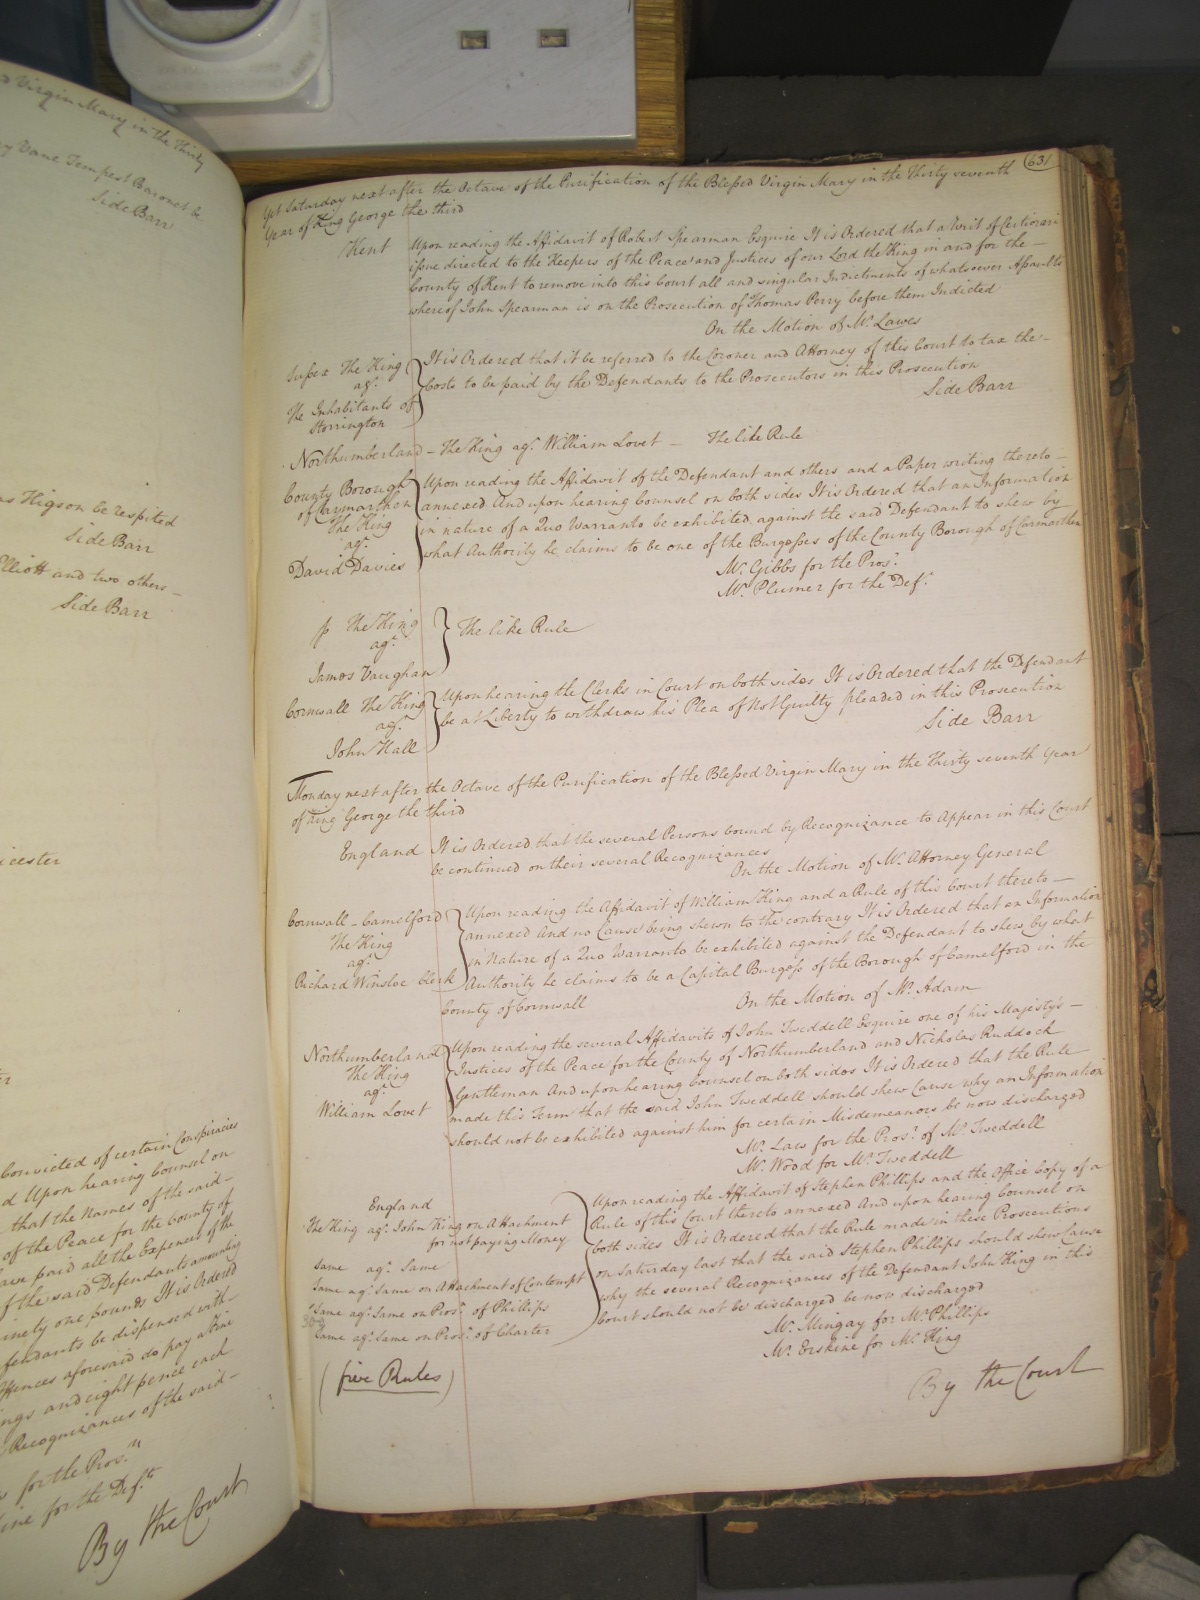 Virgin Mary in the Thirty
Vane Tempest Baronet be
Side Barr
Higson be respited
Side Barr
Elliott and two others –
Side Barr
Convicted of certain Conspiracies
Upon hearing Counsel on
that the Names of the said –
of the Peace for the County of
paid all the Expences of the
of the said Defendants amounting
ninety one pounds It is Ordered
Defendants be dispensed with –
Offences aforesaid do pay a fine
and eight pence each
Recognizances of the said –
for the Pros.rs
for the Def.ts
By the Court
631
Yet Saturday next after the Octave of the Purification of the Blessed Virgin Mary in the Thirty seventh
Year of King George the third
Kent Upon reading the Affidavit of Robert Spearman Esquire It is Ordered that a Writ of Certiorari
issue directed to the Keepers of the Peace and Justices of our Lord the King in and for the –
County of Kent to remove into this Court all and singular Indictments of whatsoever Assaults
whereof John Spearman is on the Prosecution of Thomas Perry before them Indicted
On the Motion of Mr. Lawes
Sussex The King
agt.
The Inhabitants of
Storrington
It is Ordered that it be referred to the Coroner and Attorney of this Court to tax the –
Costs to be paid by the Defendants to the Prosecutors in this Prosecution
Side Barr
Northumberland – The King agt. William Lovet – The like Rule
County Borough
of Carmarthen
The King
agt.
David Davies
Upon reading the Affidavit of the Defendant and others and a Paper writing thereto –
annexed And upon hearing Counsel on both sides It is Ordered that an Information
in nature of a Quo Warranto be exhibited against the said Defendant to shew by
what Authority he claims to be one of the Burgesses of the County Borough of Carmarthen
Mr. Gibbs for the Pros.r
Mr. Plumer for the Def.t
The King
agt.
James Vaughan
The like Rule
Cornwall The King
agt.
John Hall
Upon hearing the Clerks in Court on both sides It is Ordered that the Defendant
be at Liberty to withdraw his Plea of Not Guilty pleaded in this Prosecution
Side Barr
Monday next after the Octave of the Purification of the Blessed Virgin Mary in the Thirty seventh Year
of King George the third
England It is Ordered that the several Persons bound by Recognizance to Appear in this Court
be continued on their several Recognizances
On the Motion of Mr. Attorney General
Cornwall – Camelford
The King
agt.
Richard Winsloe Clerk
Upon reading the Affidavit of William King and a Rule of this Court thereto –
annexed And no Cause being shewn to the contrary It is Ordered that an Information
in Nature of a Quo Warranto be exhibited against the Defendant to shew by what
Authority he claims to be a Capital Burgess of the Borough of Camelford in the
County of Cornwall
On the Motion of Mr. Adam
Northumberland
The King
agt.
William Lovet
Upon reading the several Affidavits of John Tweddell Esquire one of his Majesty's –
Justices of the Peace for the County of Northumberland and Nicholas Ruddock
Gentleman And upon hearing Counsel on both sides It is Ordered that the Rule
made this Term that the said John Tweddell should shew Cause why an Information
should not be exhibited against him for certain Misdemeanors be now discharged
Mr. Law for the Pros.r of Mr. Tweddell
Mr. Wood for Mr. Tweddell
England
The King agt. John King on Attachment
for not paying Money
Same agt. Same
Same agt. Same on Attachment of Contempt
Same agt. Same on Pros.n of Phillips
Same agt. Same on Pros.n of Charter
Upon reading the Affidavit of Stephen Phillips and the Office Copy of a
Rule of this Court thereto annexed And upon hearing Counsel on
both sides It is Ordered that the Rule made in these Prosecutions
on Saturday last that the said Stephen Phillips should shew Cause
why the several Recognizances of the Defendant John King in this
Court should not be discharged be now discharged
Mr. Mingay for Mr. Phillips
Mr. Erskine for Mr. King
(five Rules)
By the Court